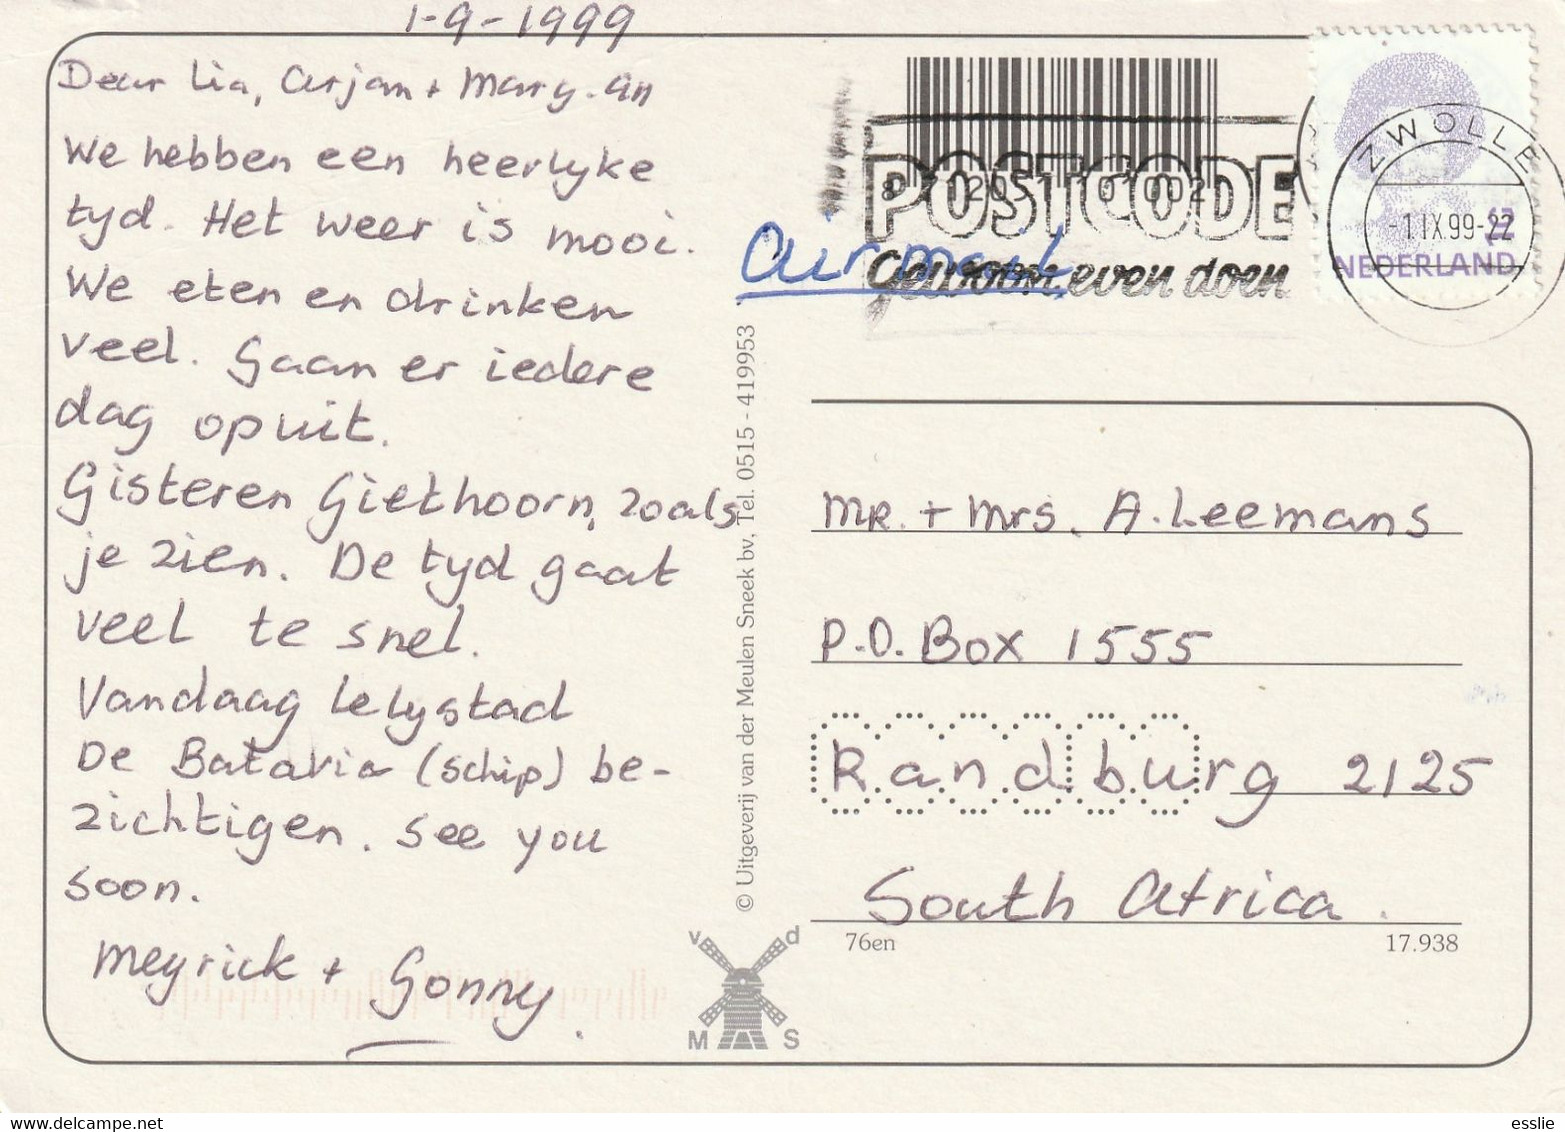 1-9-1999
Dear Lia, Arjan + Mary-an
We hebben een heerlyke
tyd. Het weer is mooi.
We eten en drinken
veel. Gaan er iedere
dag op uit.
Gisteren Giethoorn, zoals
je zien. De tyd gaat
veel te snel.
Vandaag Lelystad
De Batavia (schip) be-
zichtigen. See you
soon.
Meyrick + Gonny.
© Uitgeverij van der Meulen Sneek bv, Tel. 0515 - 419953
v d
M S
POSTCODE
Gewoon even doen
Air mail
ZWOLLE
-1.IX.99-22
NEDERLAND
Mr. + Mrs. A. Leemans
P.O. Box 1555
Randburg 2125
South Africa.
76en
17.938
esslie